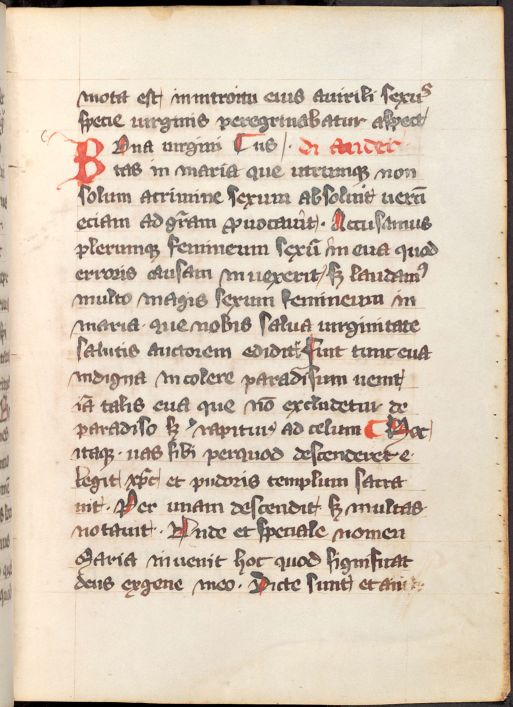 mota est in introitu eius a virili sexus
specie virginis peregrinabatur aspectu
Bona virgini
tas in maria que utrumqꝫ non
solum a crimine sexum absoluit verū
eciam ad grām ꝓuocauit. Accusamus
plerumqꝫ femineum sexū in eua quod
erroris causam in uexerit sꝫ laudamꝰ
multo magis sexum femineum in
maria. que nobis salua virginitate
salutis auctorem edidit Sunt tunc eua
indigna incolere paradisum uenit
iā talis eua que nō excludetur de
paradiso sꝫ rapitur ad celum Hoc
itaqꝫ vas sibi per quod descenderet e
legit xp̄c et pudoris templum sacra
uit. Per unam descendit sꝫ multas
notauit. Unde et speciale nomen
Maria inuenit hoc quod significat
deus ex gene meo. Dicte sunt et